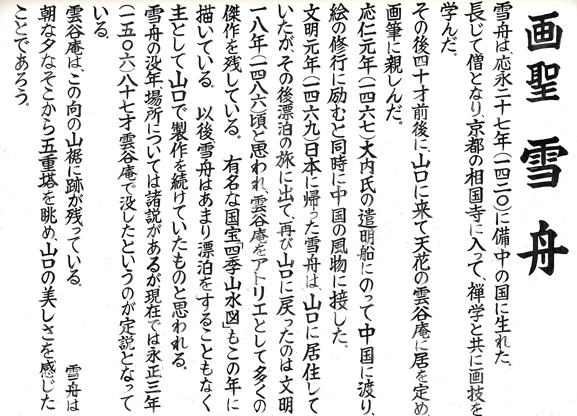 画聖 雪舟
雪舟は、応永二十七年(一四二〇)に備中の国に生れた。
長じて僧となり、京都の相国寺に入って、禅学と共に画技を
学んだ。
その後四十才前後に、山口に来て天花の雲谷庵に居を定め
画筆に親しんだ。
応仁元年(一四六七)大内氏の遣明船にのって中国に渡り
絵の修行に励むと同時に中国の風物に接した。
文明元年(一四六九)日本に帰った雪舟は、山口に居住して
いたが、その後漂泊の旅に出て、再び山口に戻ったのは文明
一八年(一四八六)頃と思われ、雲谷庵をアトリエとして多くの
傑作を残している。 有名な国宝「四季山水図」もこの年に
描いている。 以後雪舟はあまり漂泊をすることもなく
主として山口で製作を続けていたものと思われる。
雪舟の没年場所については諸説があるが現在では永正三年
(一五〇六)八十七才雲谷庵で没したというのが定説となって
いる。
雲谷庵は、この向の山裾に跡が残っている。 雪舟は
朝な夕なそこから五重塔を眺め、山口の美しさを感じた
ことであろう。